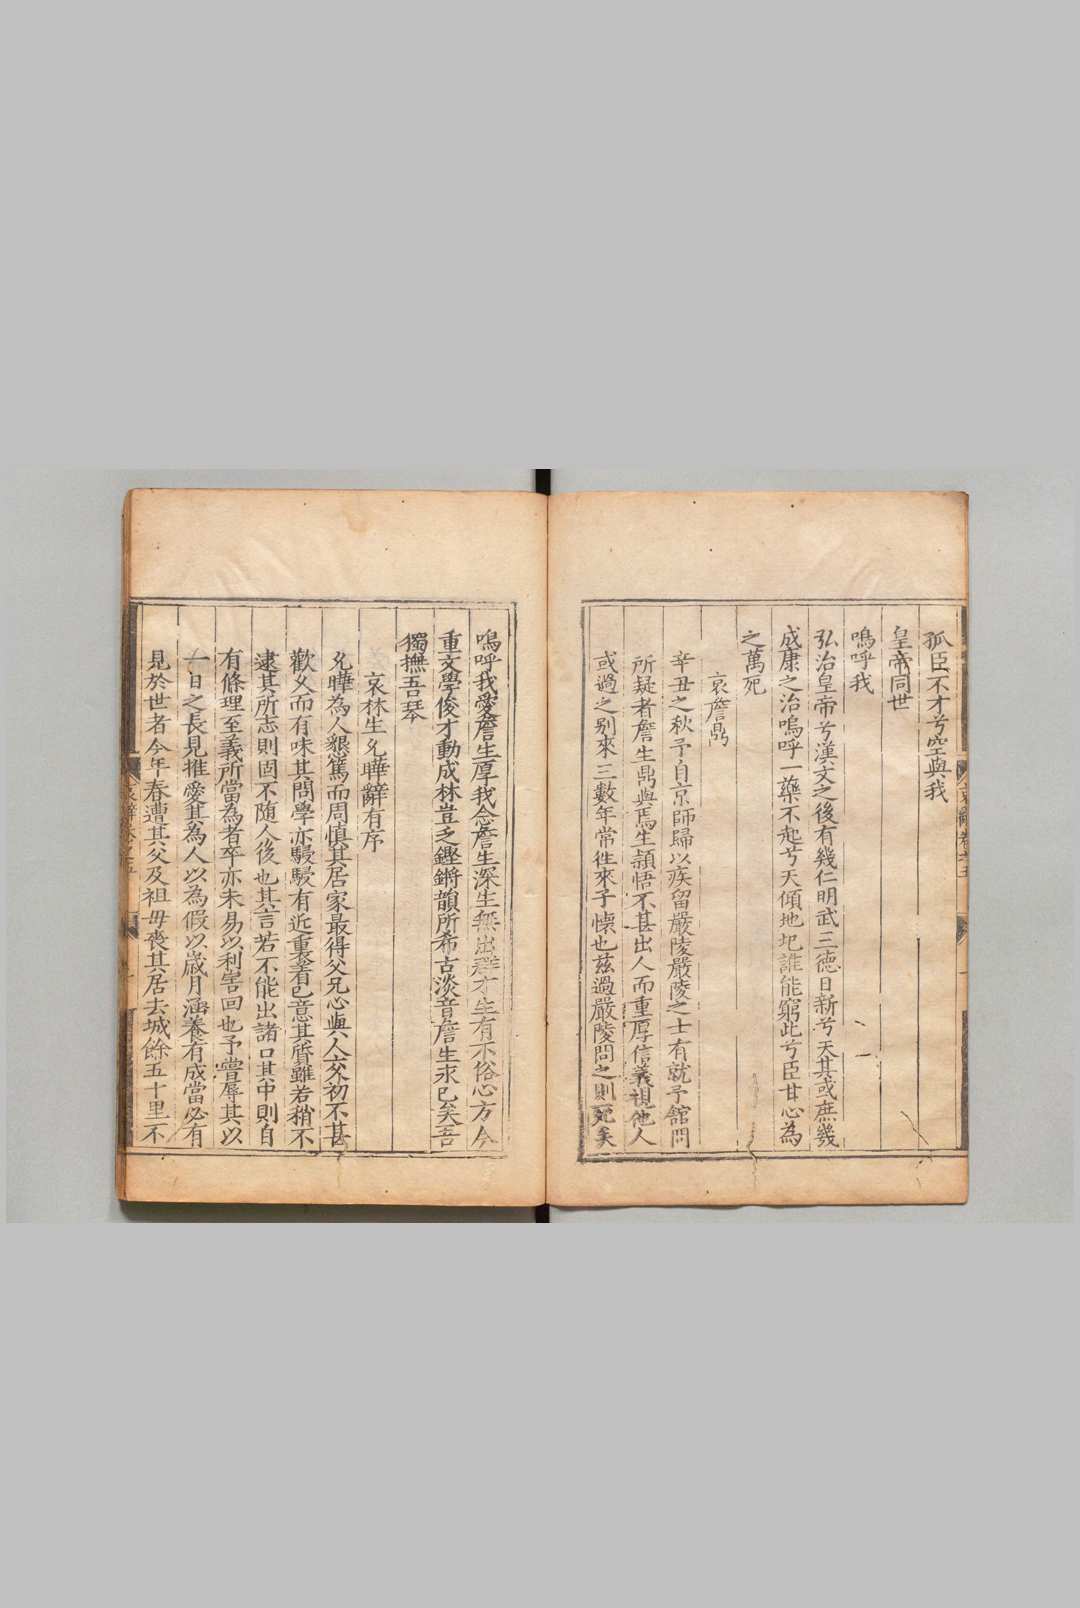 孤臣不才兮空與我
皇帝同世
嗚呼我
弘治皇帝兮漢文之後有幾仁明武三德日新兮天其或庶幾
成康之治嗚呼一藥不起兮天傾地圮誰能窮此兮臣甘心為
之萬死
哀詹鼎
辛丑之秋予自京師歸以疾留嚴陵嚴陵之士有就予舘問
所疑者詹生鼎與焉生頴悟不甚出人而重厚信義視他人
或過之别來三數年常徃來予懷也茲過嚴陵問之則死矣
嗚呼我愛詹生厚我念詹生深生無出群才生有不俗心方今
重文學俊才動成林豈乏鏗鏘韻所希古淡音詹生求已矣吾
獨撫吾琴
哀林生允曄辭有序
允曄為人懇篤而周慎其居家最得父兄心與人交初不甚
歡久而有味其問學亦駸駸有近裏著已意其質雖若稍不
逮其所志則固不随人後也其言若不能出諸口其中則自
有條理至義所當為者卒亦未易以利害回也予嘗辱其以
一日之長見推愛其為人以為假以歲月涵養有成當必有
見於世者今年春遭其父及祖母喪其居去城餘五十里不